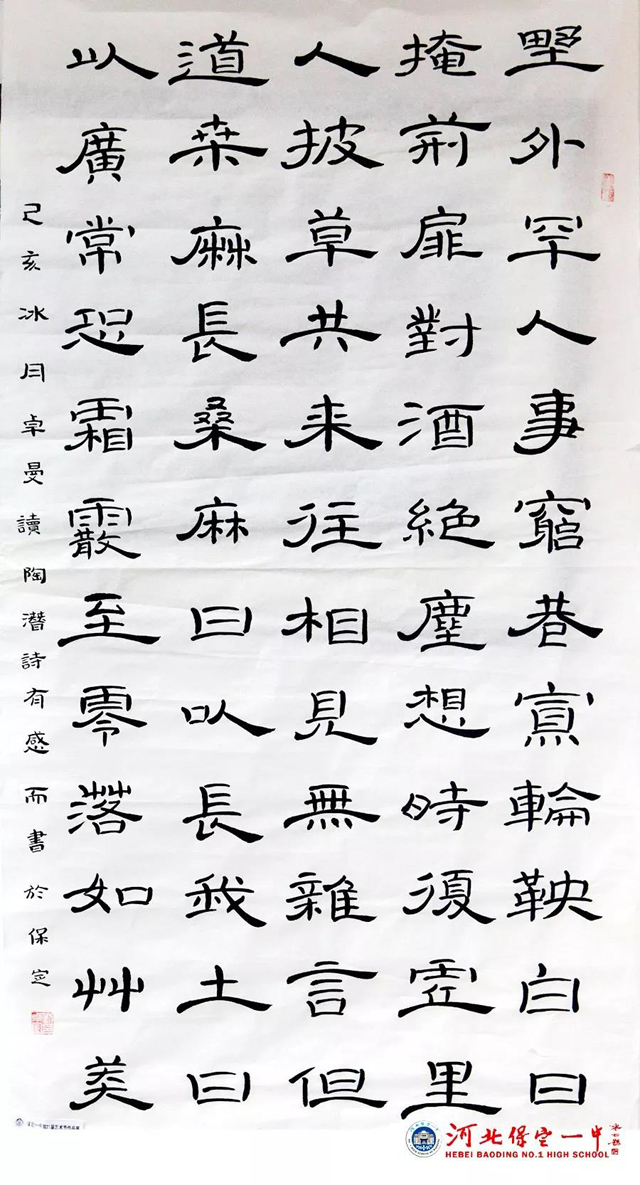 墅外罕人事窮巷寡輪鞅白日
掩荊扉對酒絕塵想時復虛里
人披草共来往相見無雜言但
道桒麻長桑麻日以長我土日
以廣常恐霜霰至零落如艸莽
己亥冰月卓曼讀陶潛詩有感而書於保定
河北保定一中
HEBEI BAODING NO.1 HIGH SCHOOL